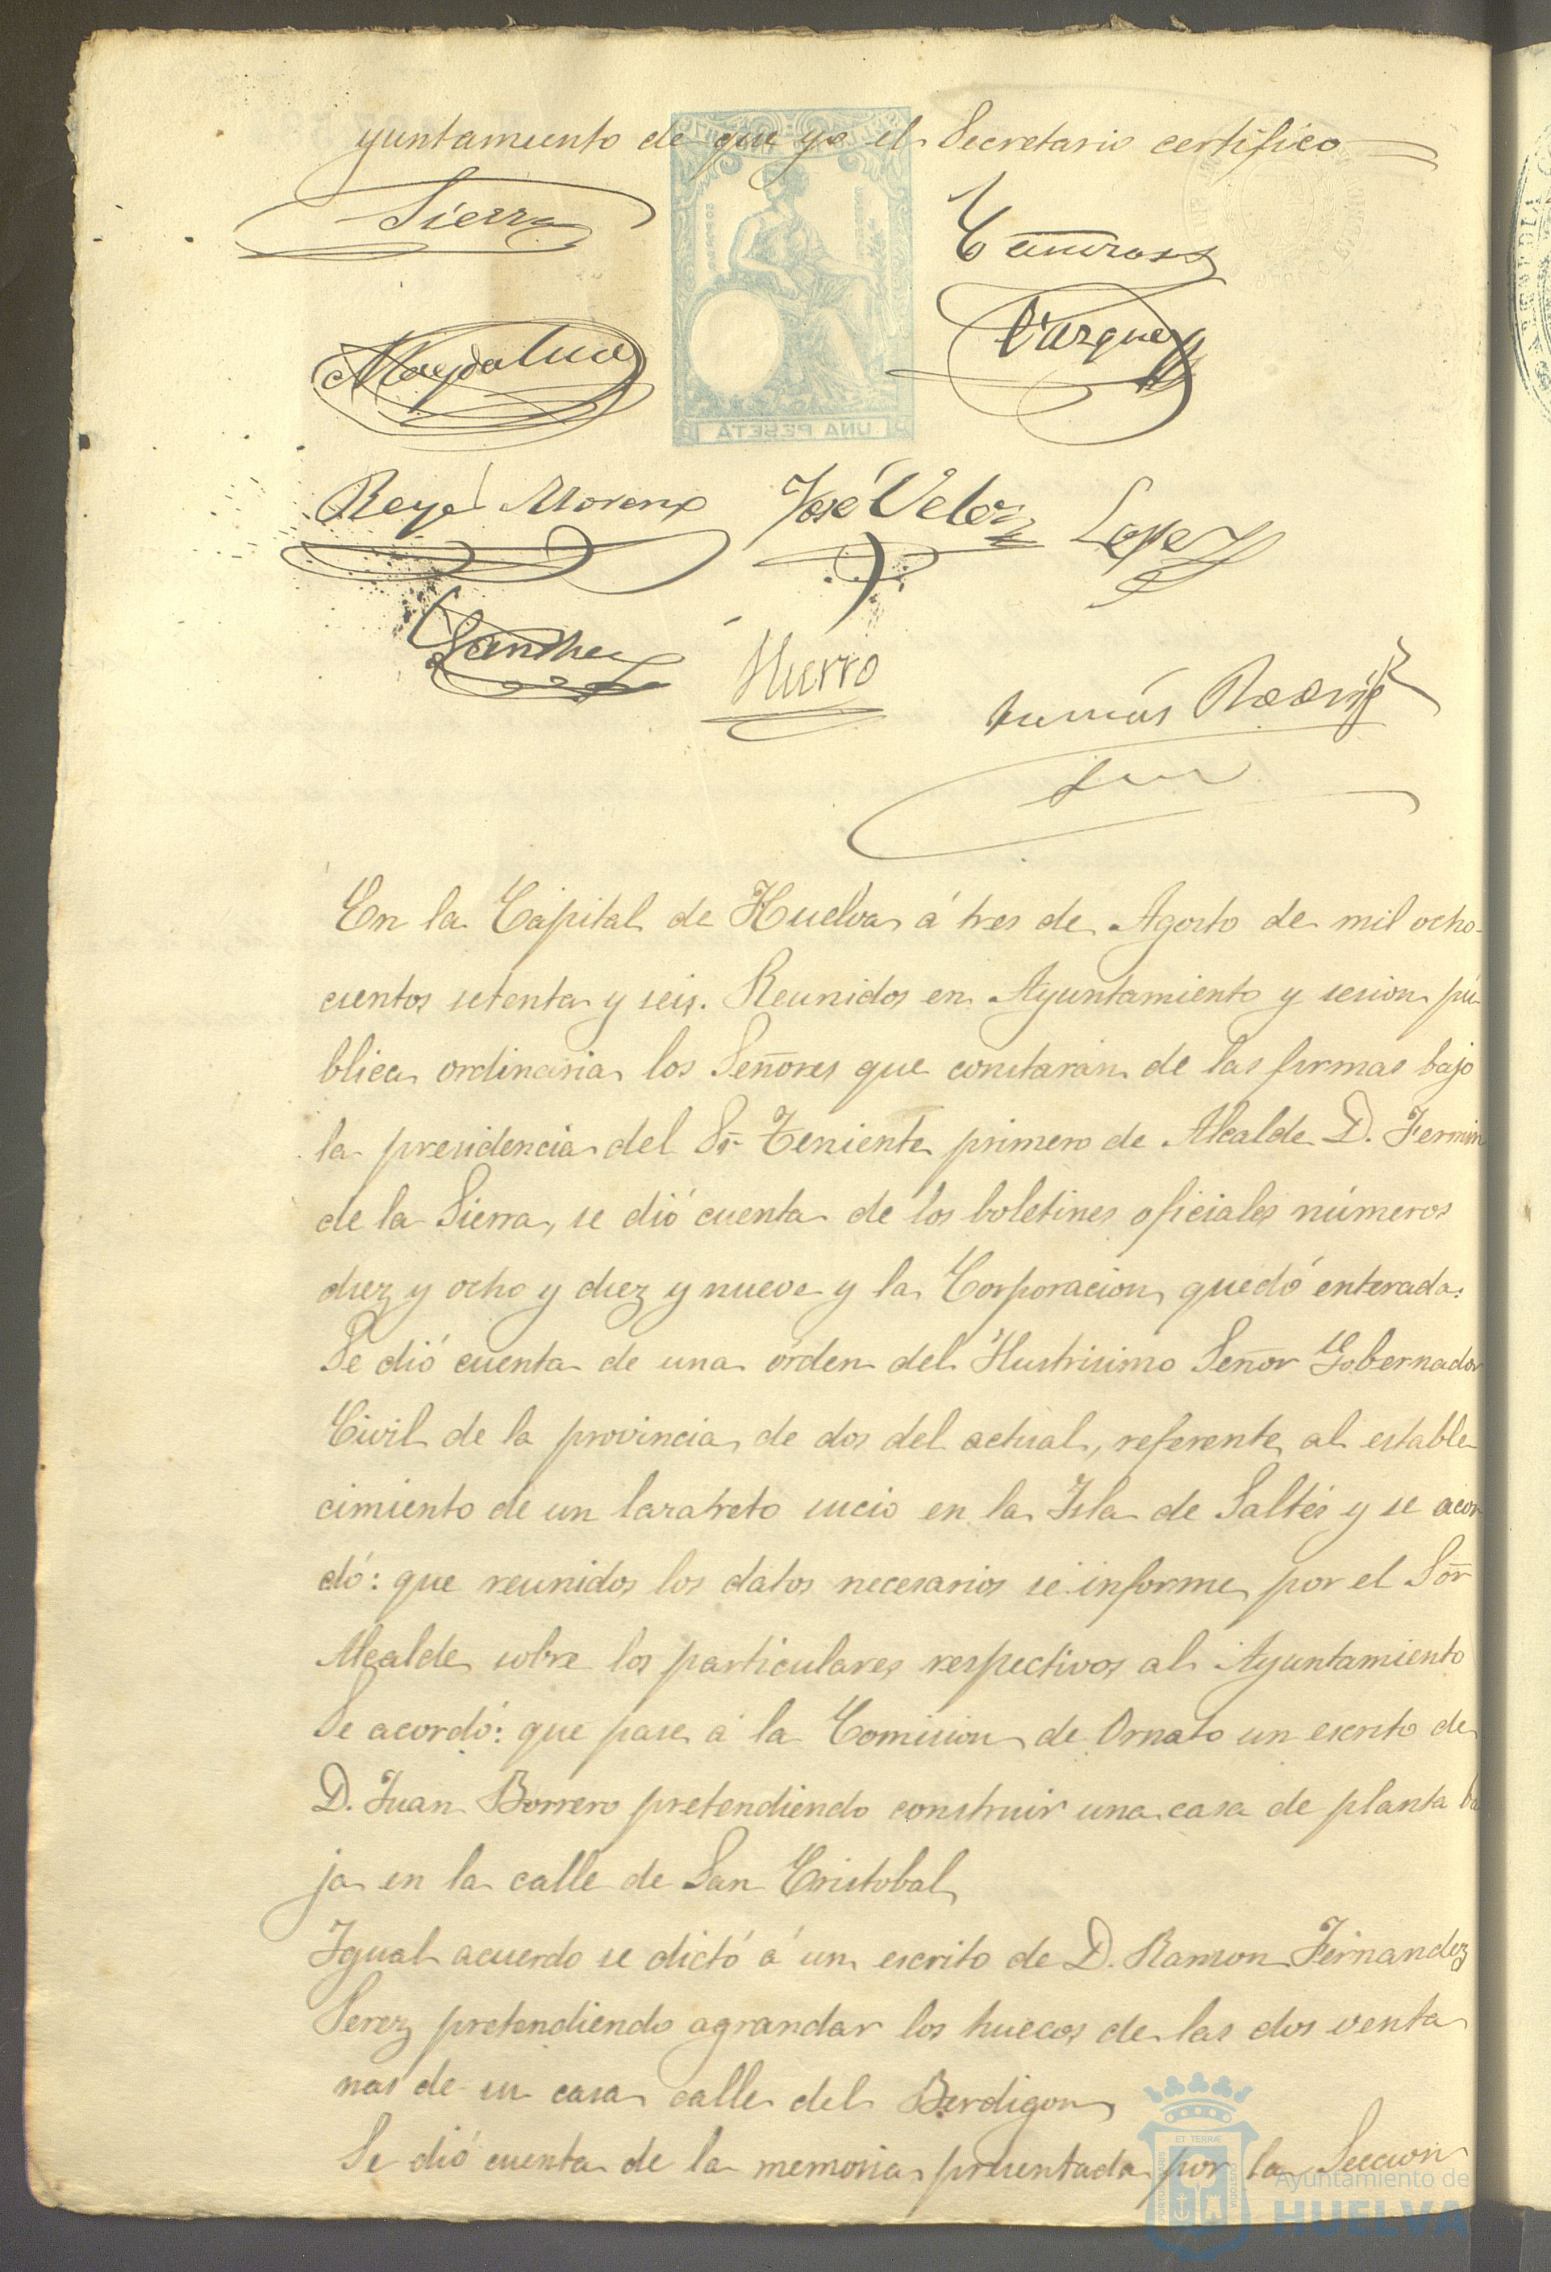 yuntamiento de que yo el Secretario certifico
Sierra
Vazquez
Magdalena
UNA PESETA
Reyes Moreno José Velez Lopez
Sanchez Hierro
Tomás Rodrig
En la Capital de Huelva á tres de Agosto de mil ocho-
cientos setenta y seis. Reunidos en Ayuntamiento y sesion pú
blica ordinaria los Señores que constarán de las firmas bajo
la presidencia del Sr. Teniente primero de Alcalde D. Fermin
de la Sierra, se dió cuenta de los boletines oficiales números
diez y ocho y diez y nueve y la Corporacion quedó enterada.
Se dió cuenta de una órden del Ilustrisimo Señor Gobernador
Civil de la provincia de dos del actual, referente al estable
cimiento de un lazareto sucio en la Isla de Saltés y se acor
dó: que reunidos los datos necesarios se informe por el Sor
Alcalde sobre los particulares respectivos al Ayuntamiento
Se acordó: que pase á la Comision de Ornato un escrito de
D. Juan Borrero pretendiendo construir una casa de planta ba
ja en la calle de San Cristobal
Igual acuerdo se dictó á un escrito de D. Ramon Fernandez
Perez pretendiendo agrandar los huecos de las dos venta
nas de su casa calle del Berdigon
Se dió cuenta de la memoria presentada por la Seccion
Ayuntamiento de
HUELVA